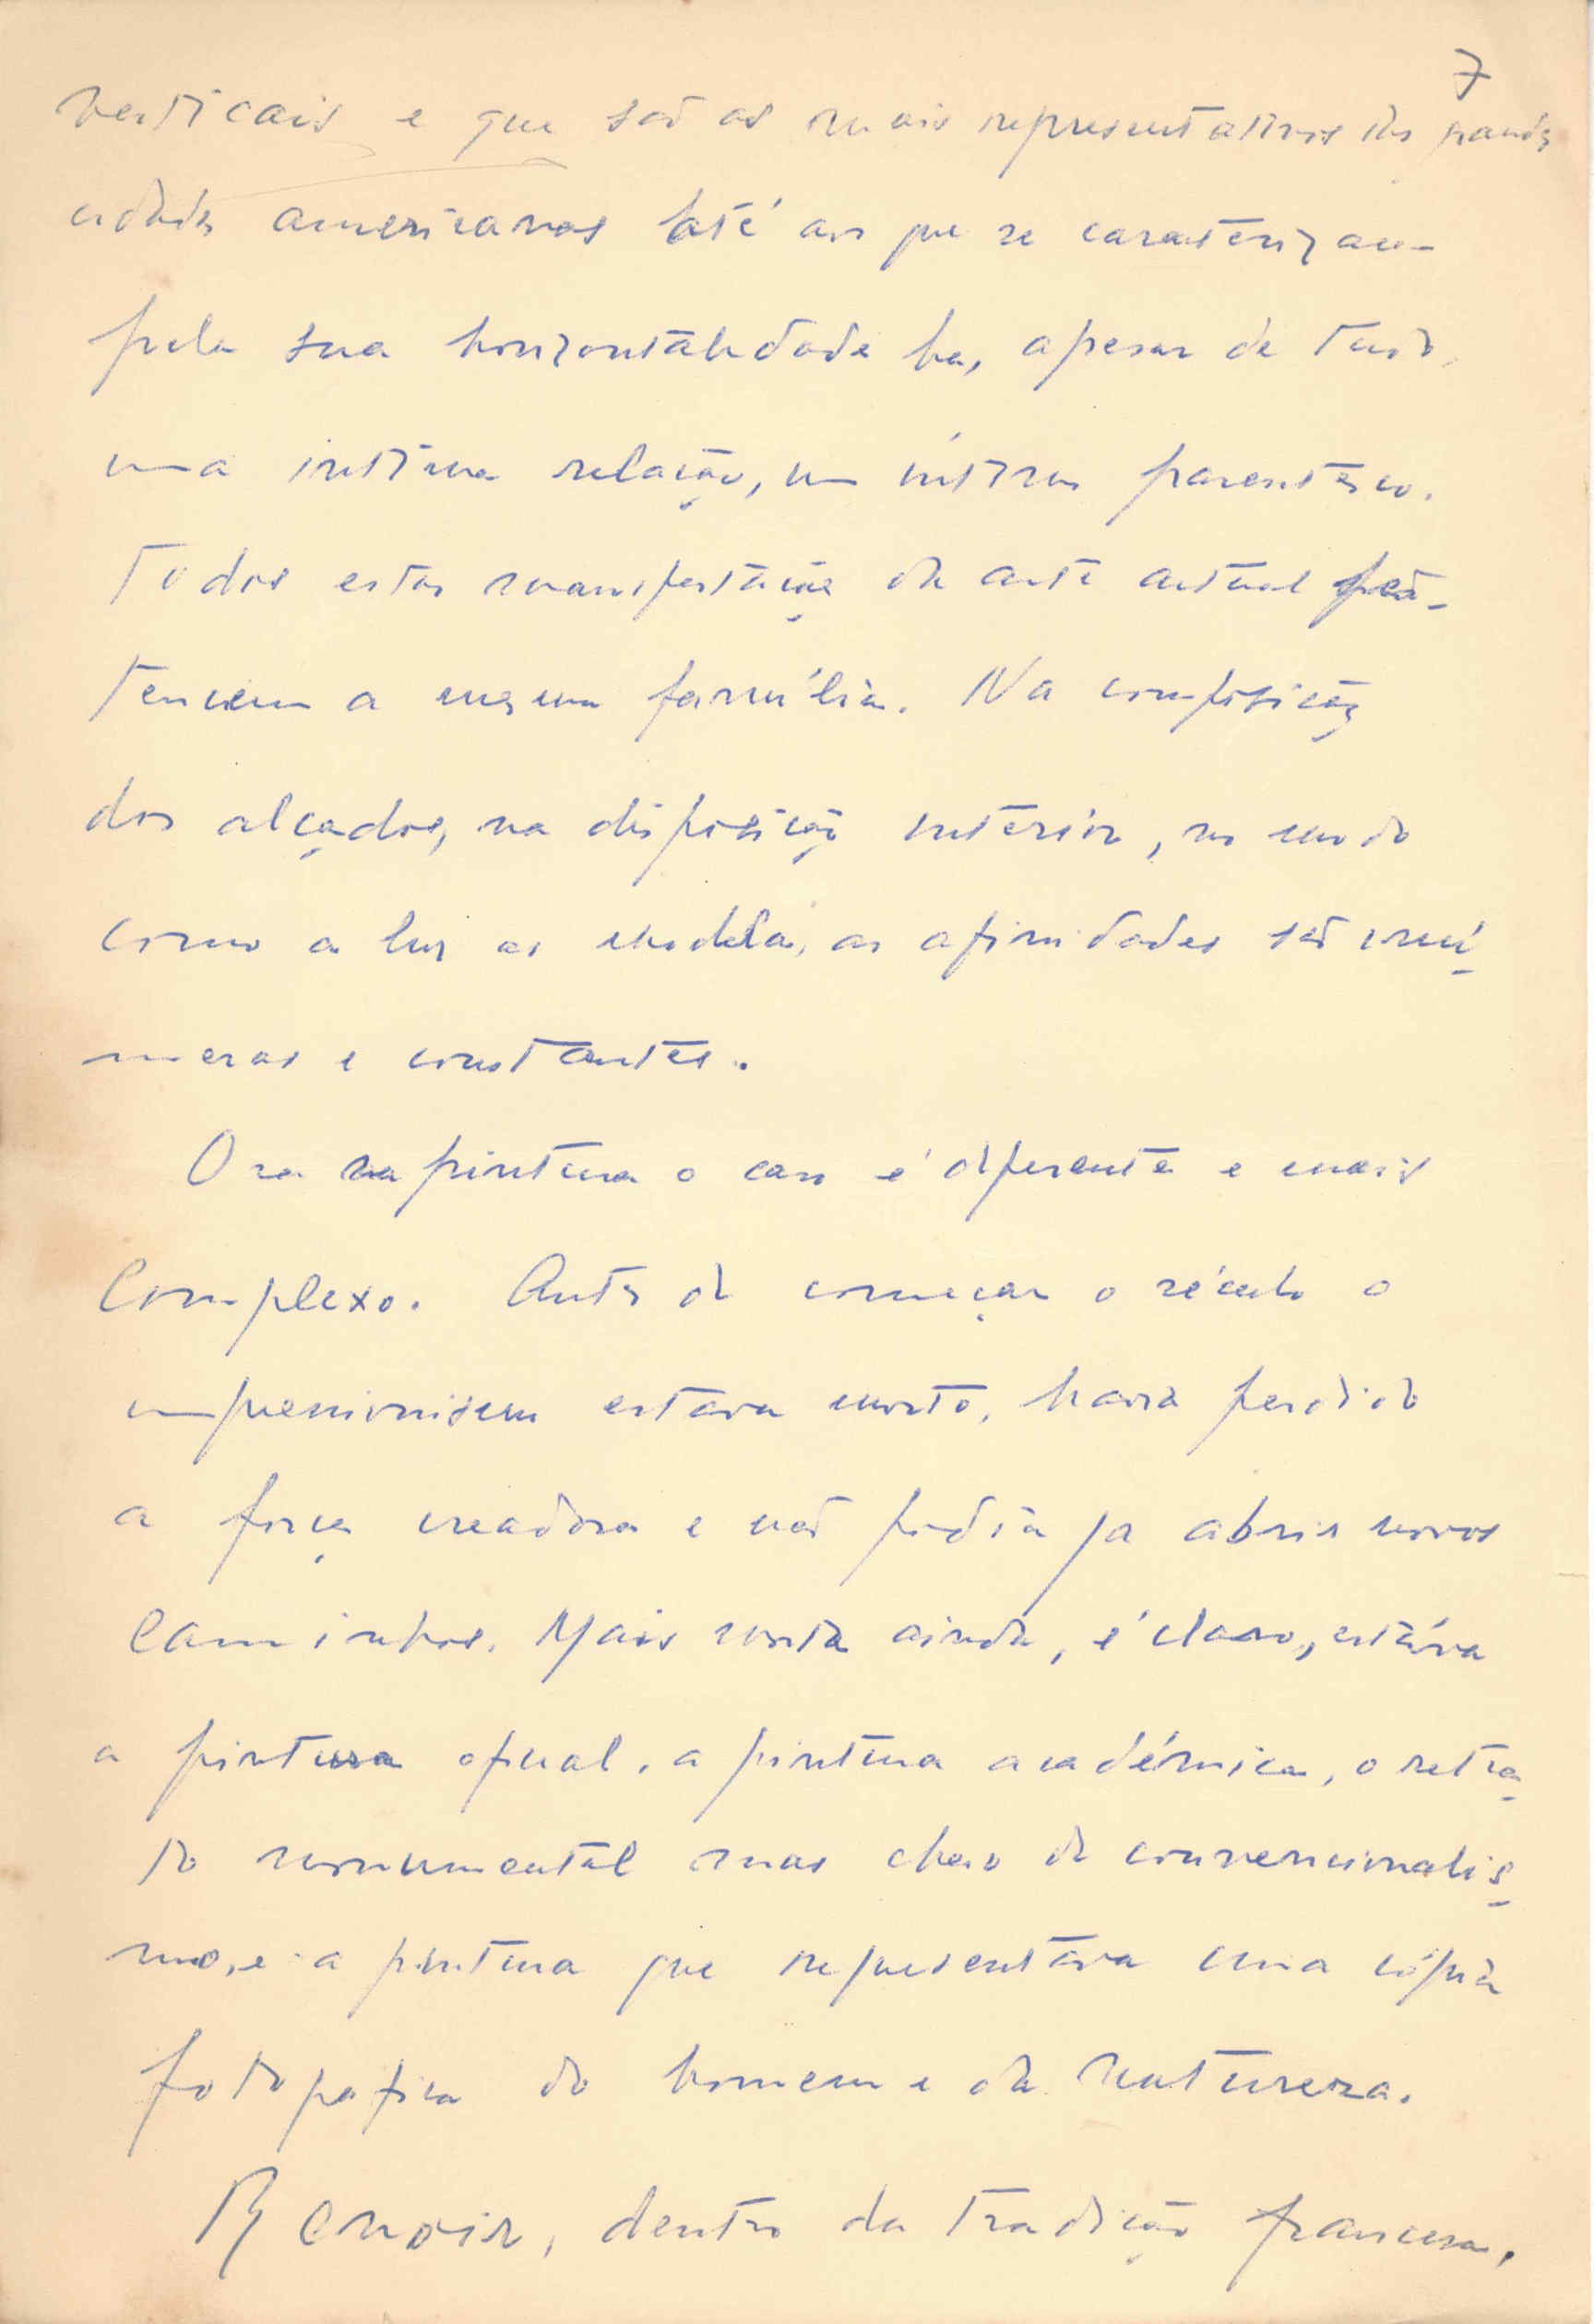 7
verticais e que são as mais representativas das grandes
cidades americanas até as que se caracterizam
pela sua horizontalidade ha, apesar de tudo,
uma intima relação, um intimo parentesco.
Todas estas manifestações da arte actual per-
tencem a mesma família. Na composição
dos alçados, na disposição interior, no modo
como a luz os modela, as afinidades são inú-
meras e constantes.
Ora na pintura o caso é diferente e mais
Complexo. Antes de começar o século o
impressionismo estava morto, havia perdido
a força creadora e não podia ja abrir novos
Caminhos. Mais morta ainda, é claro, estáva
a pintura oficial, a pintura académica, o retra-
to monumental mas cheio de convencionalis-
mo, e a pintura que representava uma cópia
fotografica do homem e da Natureza.
Renoir, dentro da tradição francesa,